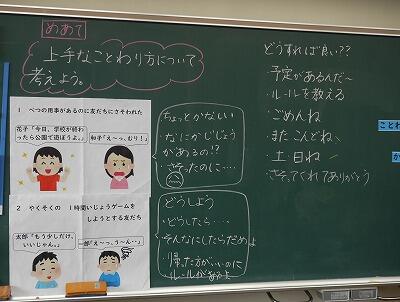 めあて
上手なことわり方について
考えよう。
1 べつの用事があるのに友だちにさそわれた
花子「今日、学校が終わ
ったら公園で遊ぼうよ。」
和子「え~っ、むり!」
2 やくそくの 1時間いじょうゲームを
しようとする友だち
太郎「もう少しだけ、
いいじゃん。」
一郎「え~っ、う~ん・・」
ちょっとかなしい
なにかじじょう
があるの!?
さそったのに・・・
どうしよう
どうしたら・・・
そんなにしたらだめよ
帰った方がいいのに
ルールがあるよ
どうすれば良い??
・予定があるんだ~
・ルールを教える
・ごめんね
・またこんどね
・土・日ね
・さそってくれてありがとう
ことわ
か